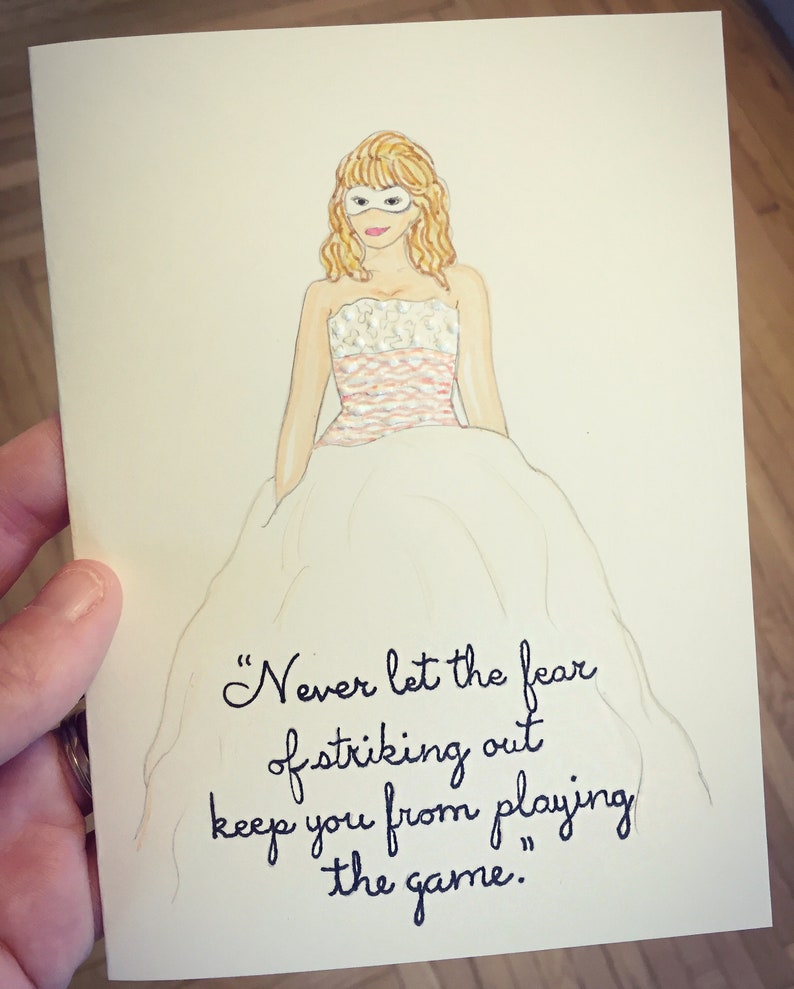 “Never let the fear
of striking out
keep you from playing
the game.”